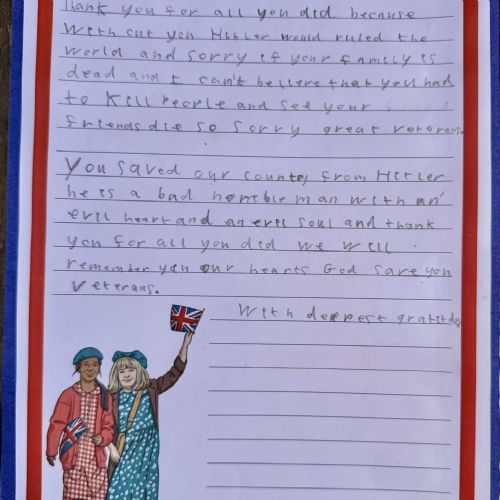 Thank you for all you did because
With out you Hitler would ruled the
world and sorry if your family is
dead and I can't believe that you had
to kill people and see your
friends die so sorry great veterans.
You saved our country from Hitler
he is a bad horrible man with an
evil heart and an evil soul and thank
you for all you did we will
remember you our hearts God save you
veterans.
With deepest gratitde